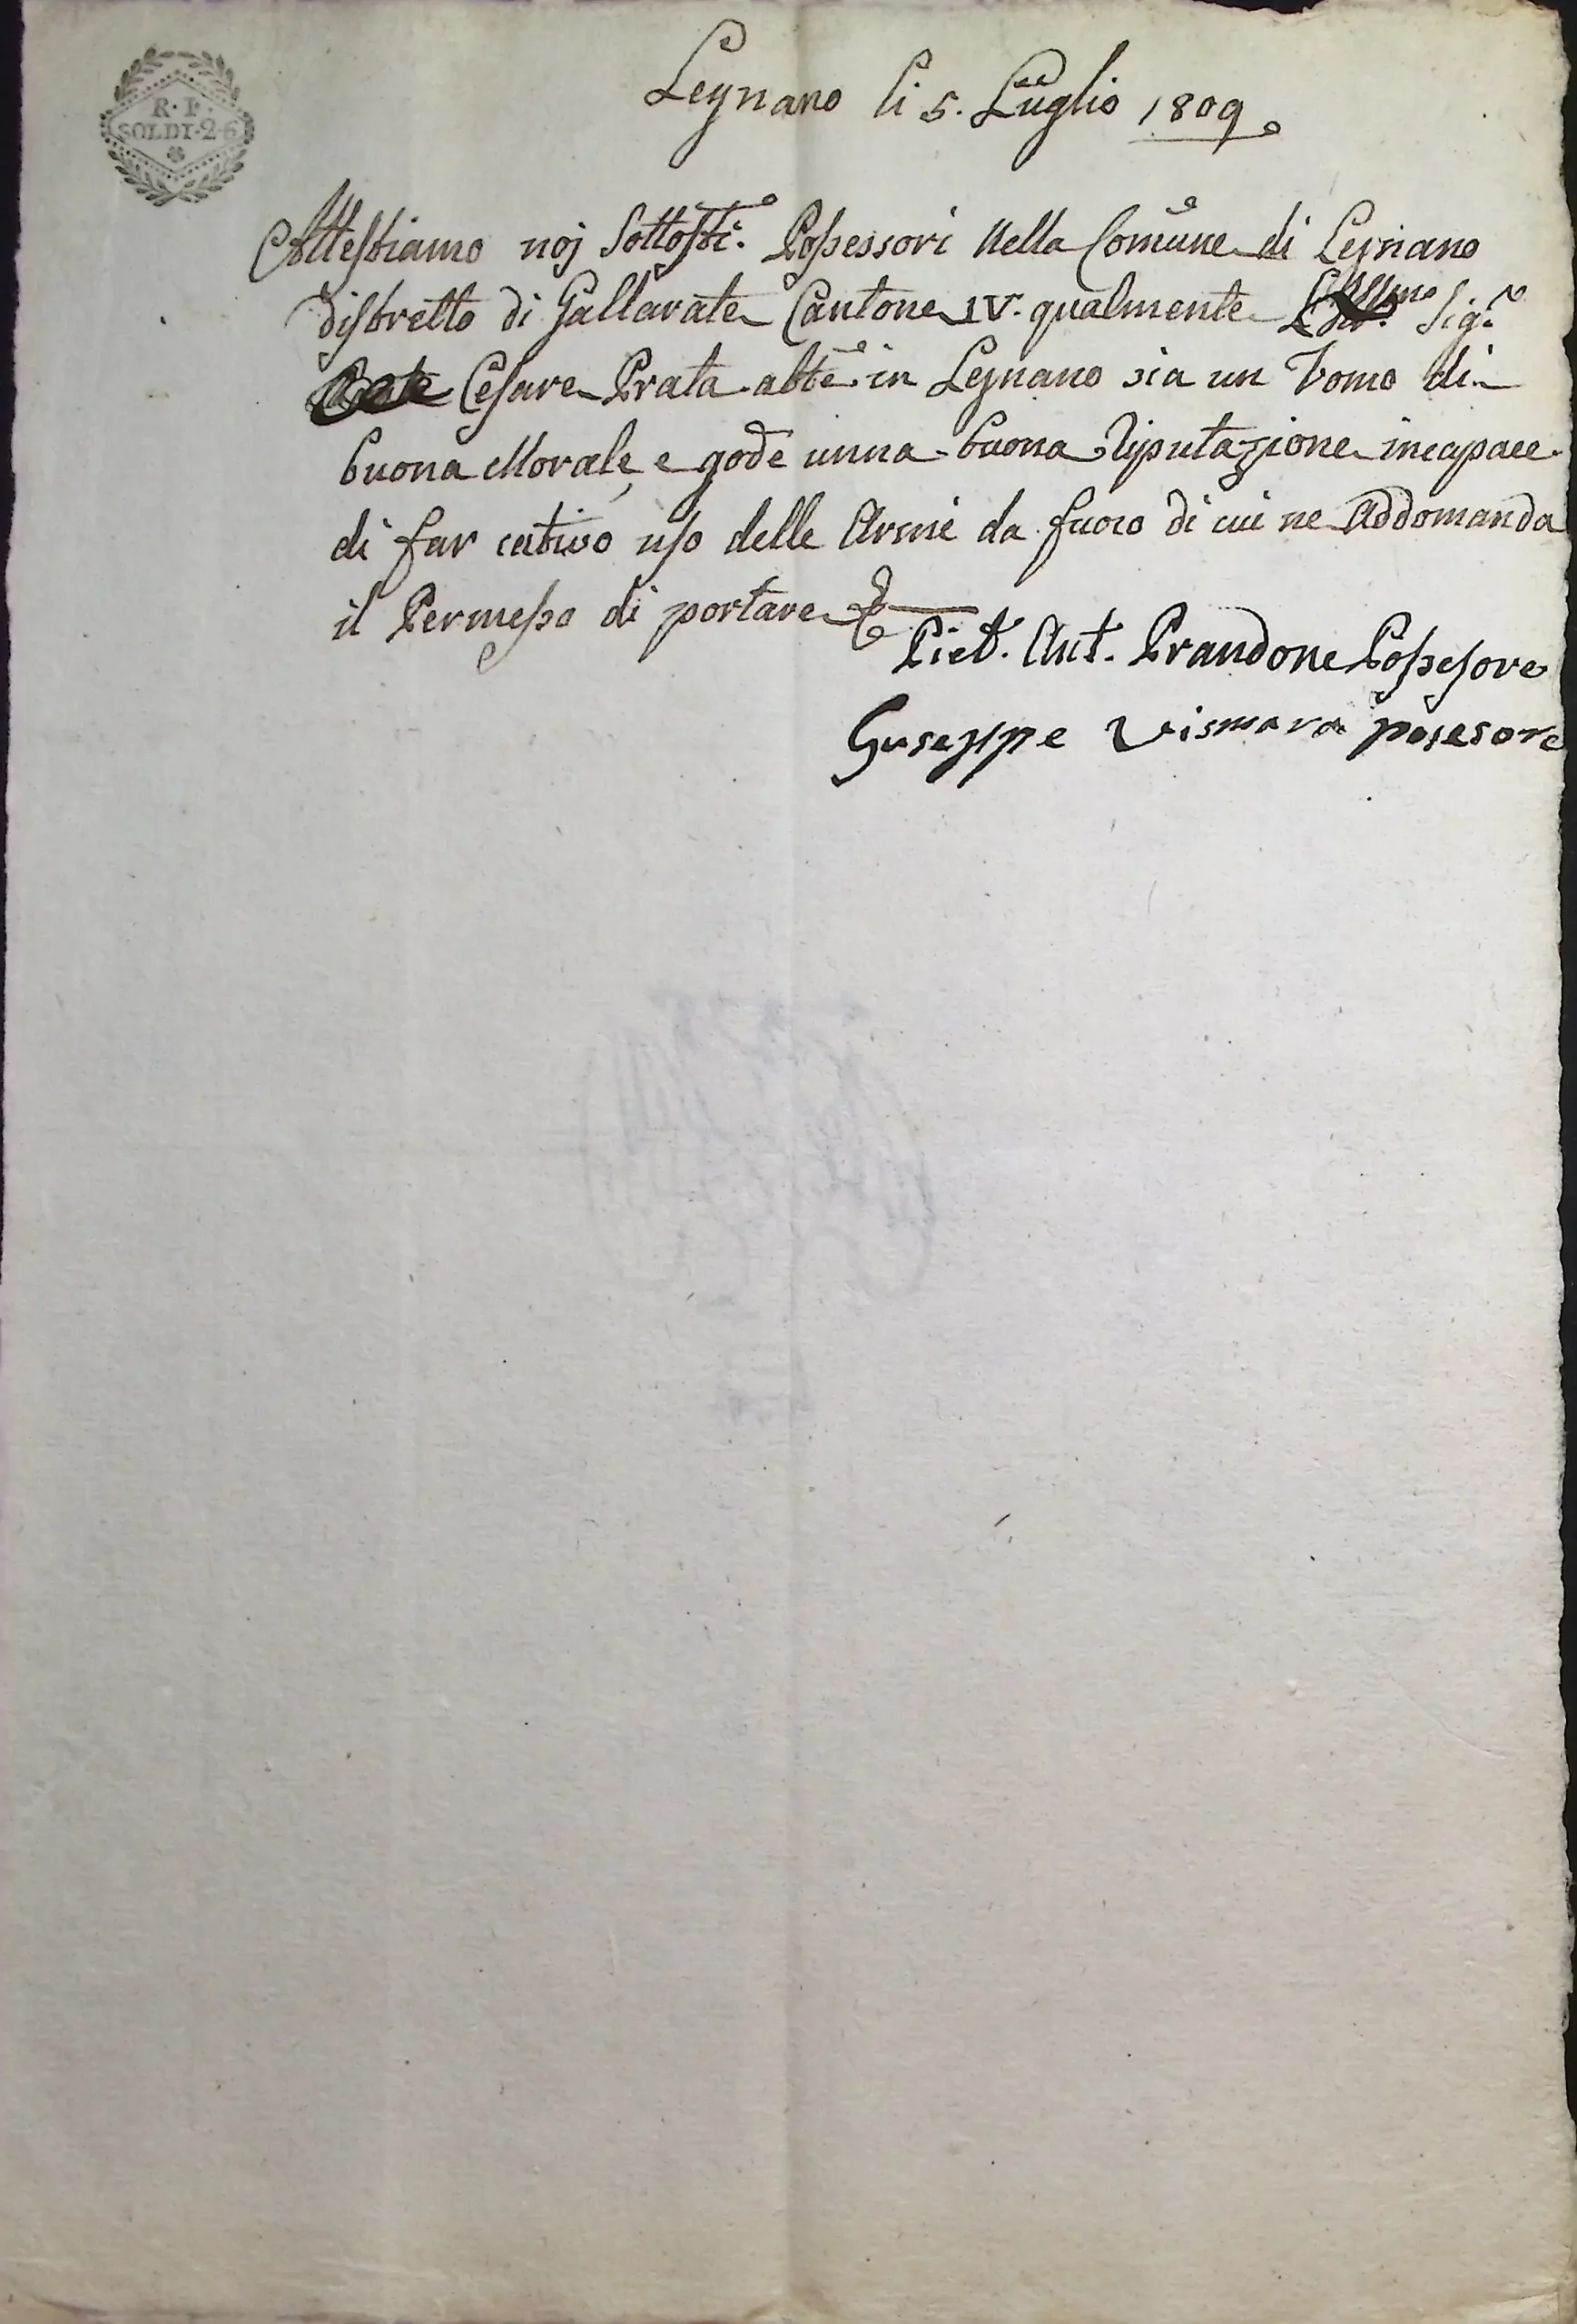 R. P.
SOLDI. 2. 6
Legnano li 5. Luglio 1809
Attestiamo noj Sottostti. Possessori Nella Comune di Legnano
distretto di Gallarate Cantone IV. qualmente Sigr.
Cesare Prata abte. in Legnano sia un Vomo di
buona Morale, e gode unna buona Riputazione incapace
di far cativo uso delle Armi da fuoco di cui ne Addomanda
il Permesso di portare
Piet. Ant. Prandone Possesore
Guseppe Vismara posesore